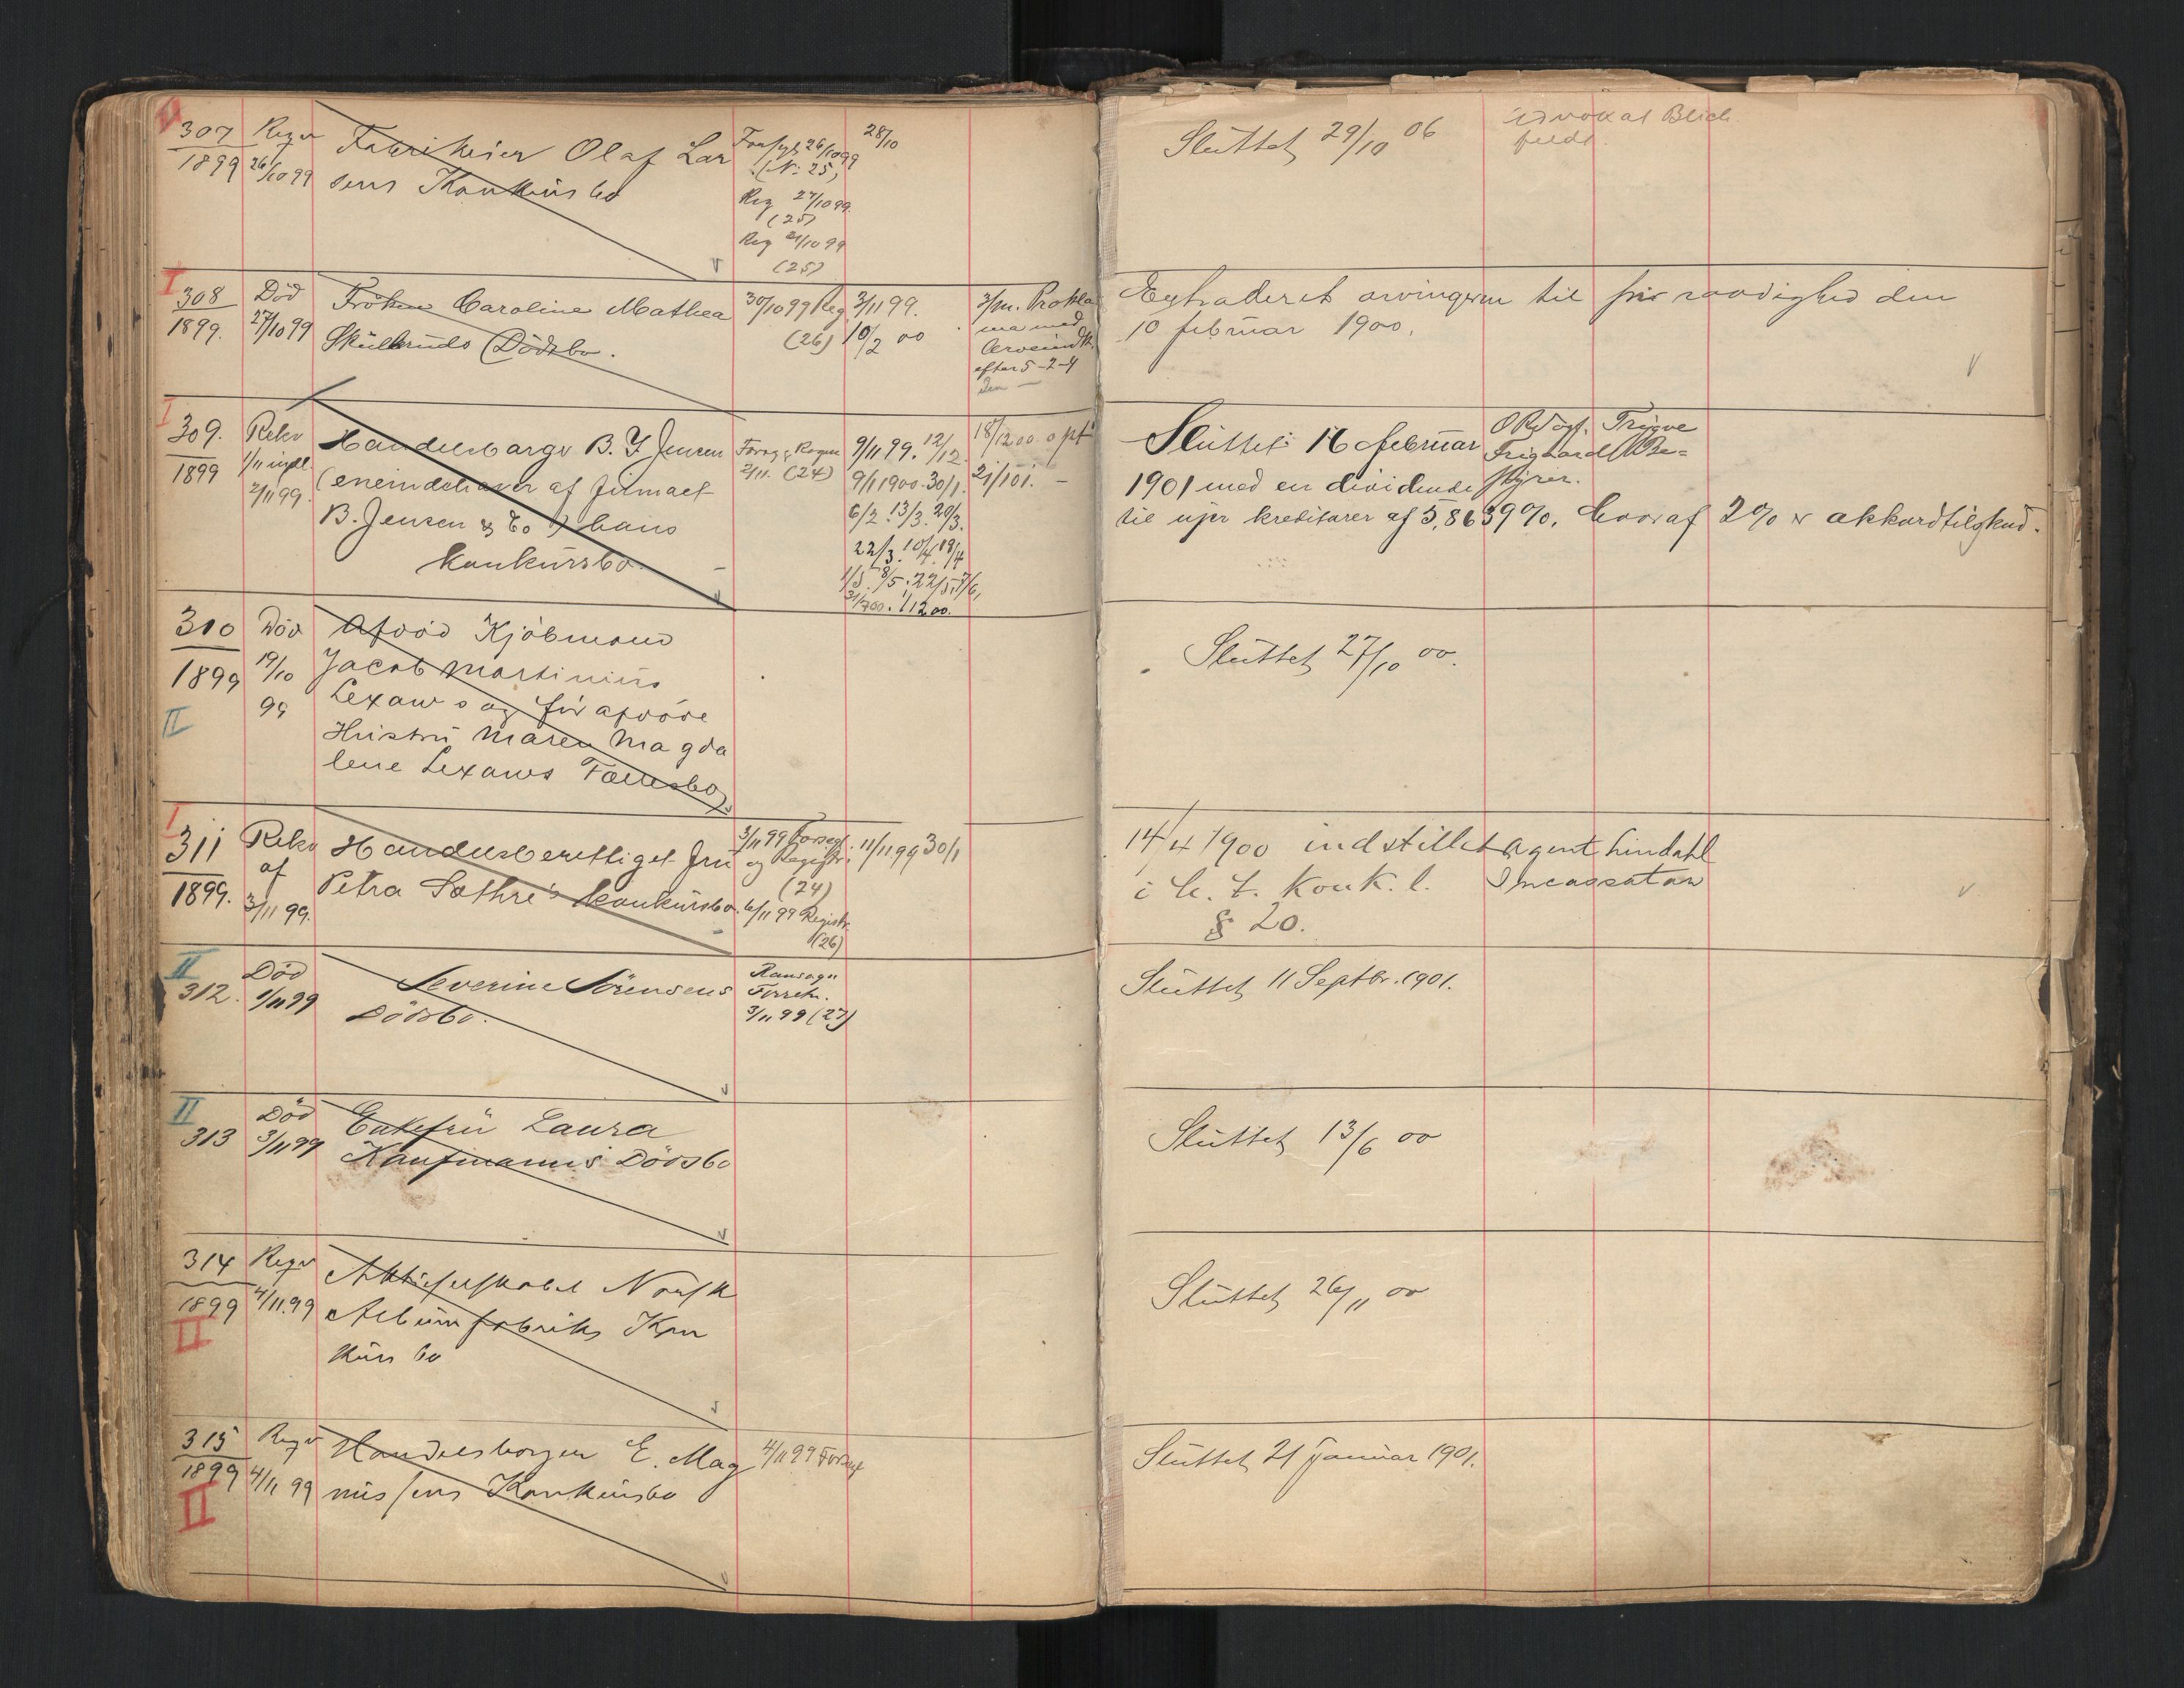 307
1899
Reqv
26/10 99
Fabrikeier Olaf Lar
sens Konkursbo
Forsgl. 26/10 99
(N: 25)
Reg 27/10 99
(25)
Reg 31/10 99
(25)
28/10
Sluttet 29/10 06
advokat Blich
feldt
I
308
1899.
Död
27/10 99
Fröken Caroline Mathea
Skülberuds Dödsbo.
30/10 99 Reg
(26)
3/11 99.
10/2 00
3/m. Prokla
ma med
efter 5-2-4
Extraderet arvingerne til fri raadighed den
10 februar 1900.
I
309.
1899
Rekv
1/11 indl.
2/11 99.
Handelsborger B. J. Jensen
(eneindehaver af firmaet
B. Jensen & Co) hans
konkursbo.
Forsg. & Regist
2/11. (24)
9/11 99. 12/12
9/1 1900. 30/1.
6/2. 13/3. 20/3.
22/3. 10/4. 19/4
1/5. 8/5. 22/5. 7/6.
31/7 00. 1/12 00.
18/12 00 opt
21/1 01. —
Sluttet 16 februar
1901 med en dividende
til upr kreditorer af 5,8639 %, hvoraf 2 % er akkordtilskud.
ORSagf. Trygve
Frighard Be=
styrer.
310
1899
II
Död
19/10
99
Afdöd Kjöbmand
Jacob Martinius
Lexaws og för afdöde
Hustru Maren Magda
lene Lexaws Fællesbo
Sluttet 27/10 00.
I
311
1899.
Rekv
af
3/11 99.
Handelsberettiget Fru
Petra Sæthre's konkursbo.
3/11 99 Forsegl.
og Registr.
(24)
6/11 99 Registr.
(26)
11/11 99 30/1
14/4 1900 indstillet
i h. t. Konk. l.
§ 20.
Agent Lindahl
Incassator
II
312.
Död
1/11 99
Severine Sörensens
Dödsbo.
Forretn.
3/11 99 (27)
Sluttet 11 Septbr. 1901.
II
313
Död
3/11 99
Enkefrü Laura
Kaufmanns Dödsbo
Sluttet 13/6 00
314
1899
II
Reqv
4/11 99
Aktieselskabet Norsk
Albumfabriks Kon
kurs bo
Sluttet 26/11 00
315
1899
II
Reqv
4/11 99
Handelsborger E. Mag
nussens Konkursbo
4/11 99 Forsegl
Sluttet 21 Januar 1901.